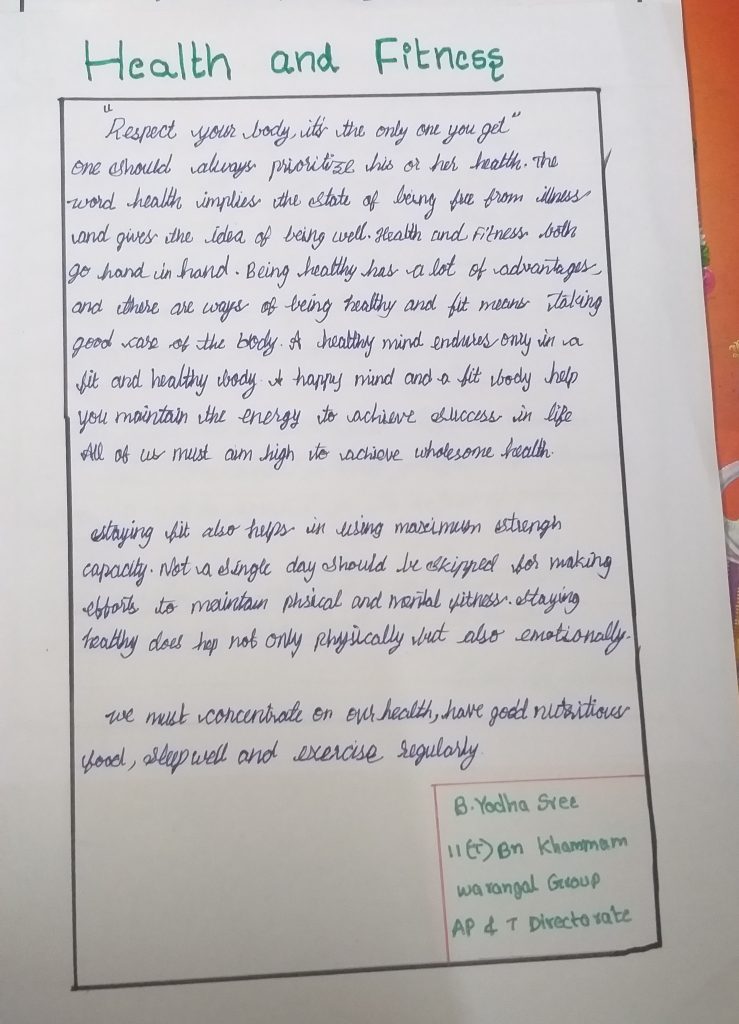 Health and Fitness
"Respect your body, it's the only one you get"
one should always prioritize his or her health. The
word health implies the state of being free from illness
and gives the idea of being well. Health and Fitness both
go hand in hand. Being healthy has a lot of advantages,
and there are ways of being healthy and fit means taking
good care of the body. A healthy mind endures only in a
fit and healthy body. A happy mind and a fit body help
you maintain the energy to achieve success in life
All of us must aim high to achieve wholesome health.
staying fit also helps in using maximum strengh
capacity. Not a single day should be skipped for making
efforts to maintain phsical and mental fitness. staying
healthy does hep not only physically but also emotionally.
we must concentrate on our health, have good nutritious
food, sleep well and exercise regularly.
B. Yodha Sree
11(T) Bn Khammam
warangal Group
AP & T Directorate